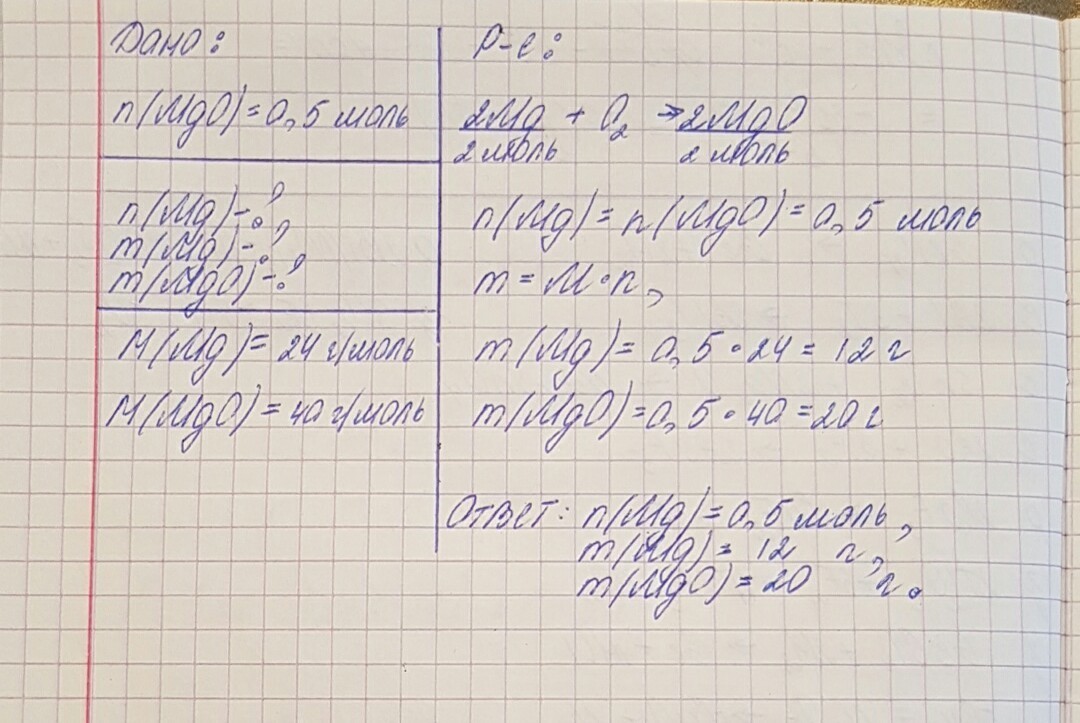 Дано:
n(MgO)=0,5 моль
n(Mg)-?
m(Mg)-?
m(MgO)-?
M(Mg)= 24 г/моль
M(MgO)=40 г/моль
Р-е:
2Mg + O₂ → 2MgO
2 моль 2 моль
n(Mg)= n(MgO)=0,5 моль
m = M·n,
m(Mg)= 0,5·24 = 12 г
m(MgO)=0,5·40=20 г
Ответ: n(Mg)=0,5 моль,
m(Mg)= 12 г,
m(MgO)=20 г.